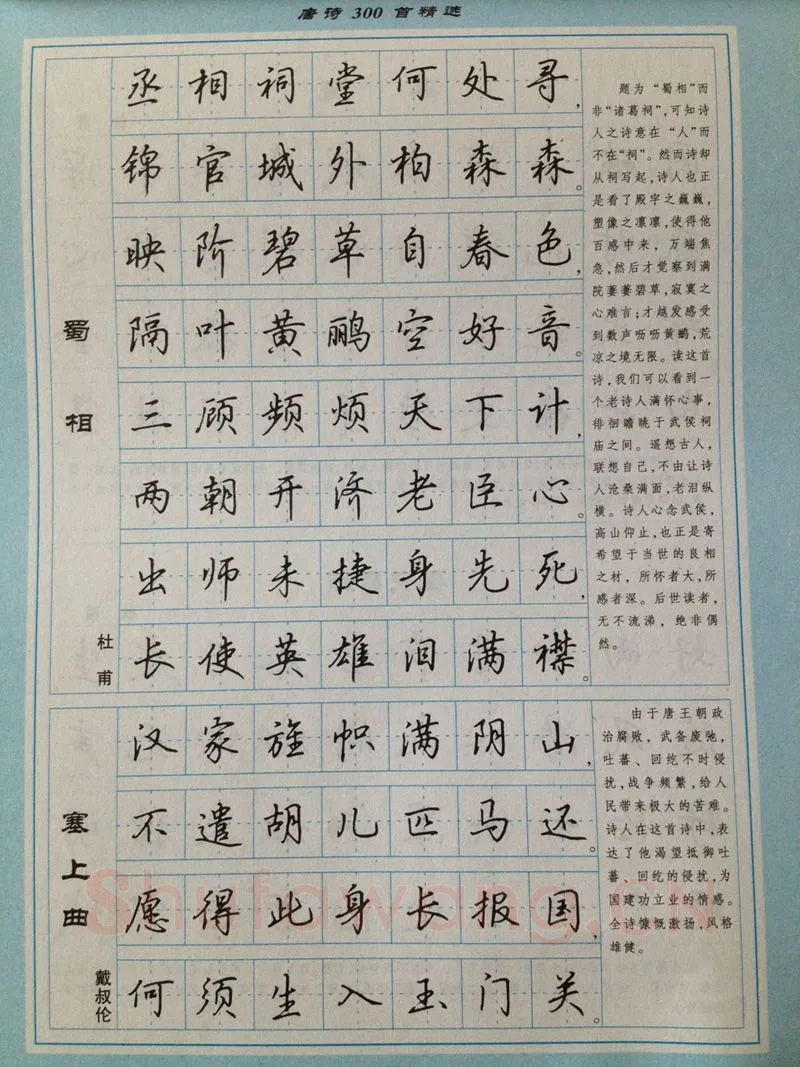 唐诗 300 首精选
蜀相
杜甫
丞相祠堂何处寻,
锦官城外柏森森。
映阶碧草自春色,
隔叶黄鹂空好音。
三顾频烦天下计,
两朝开济老臣心。
出师未捷身先死,
长使英雄泪满襟。
题为“蜀相”而
非“诸葛祠”,可知诗
人之诗意在“人”而
不在“祠”。然而诗却
从祠写起,诗人也正
是看了殿宇之巍巍,
塑像之凛凛,使得他
百感中来,万端焦
急,然后才觉察到满
院萋萋碧草,寂寞之
心难言;才越发感受
到数声呖呖黄鹂,荒
凉之境无限。读这首
诗,我们可以看到一
个老诗人满怀心事,
徘徊瞻眺于武侯祠
庙之间。遥想古人,
联想自己,不由让诗
人沧桑满面,老泪纵
横。诗人心念武侯,
高山仰止,也正是寄
希望于当世的良相
之材,所怀者大,所
感者深。后世读者,
无不流涕,绝非偶
然。
塞上曲
戴叔伦
汉家旌帜满阴山,
不遣胡儿匹马还。
愿得此身长报国,
何须生入玉门关。
由于唐王朝政
治腐败,武备废弛,
吐蕃、回纥不时侵
扰,战争频繁,给人
民带来极大的苦难。
诗人在这首诗中,表
达了他渴望抵御吐
蕃、回纥的侵扰,为
国建功立业的情感。
全诗慷慨激扬,风格
雄健。